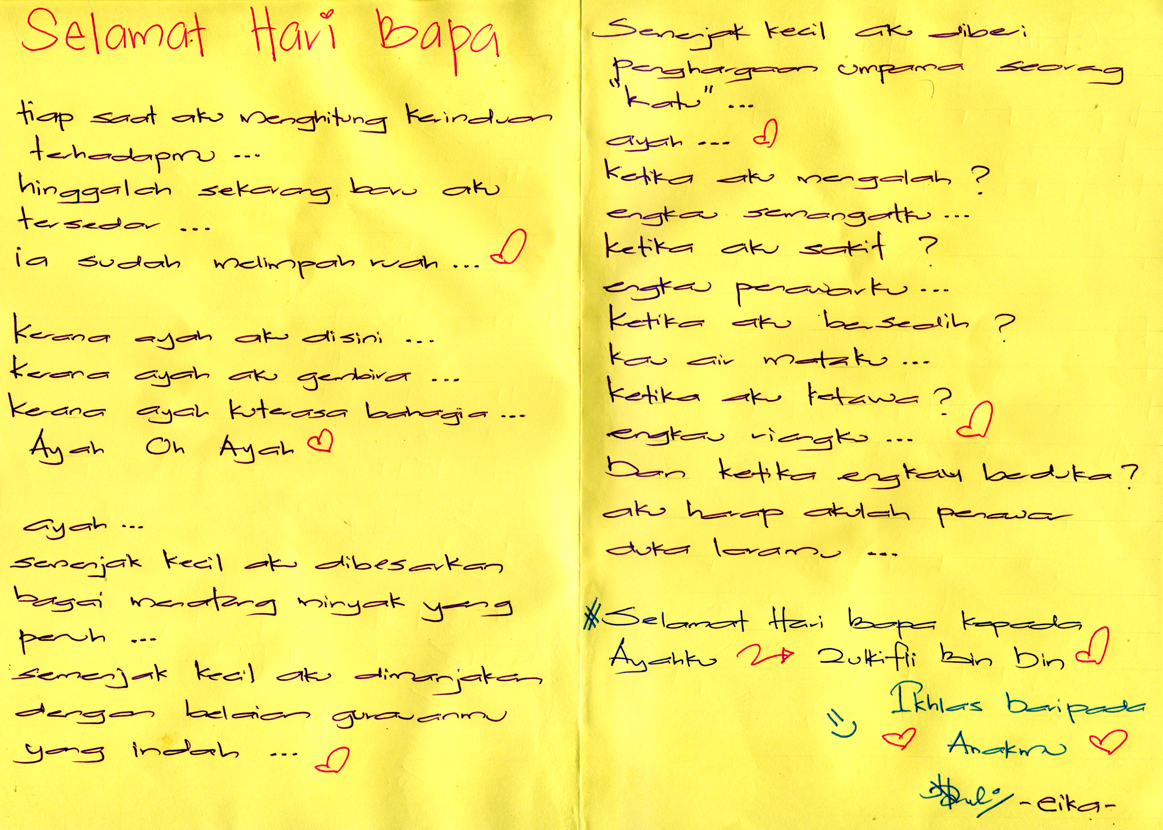 Selamat Hari Bapa
tiap saat aku menghitung kerinduan
terhadapmu ...
hinggalah sekarang baru aku
tersedar ...
ia sudah melimpah ruah ...
kerana ayah aku disini ...
kerana ayah aku gembira ...
kerana ayah kuterasa bahagia ...
Ayah Oh Ayah
ayah ...
semenjak kecil aku dibesarkan
bagai menatang minyak yang
penuh ...
semenjak kecil aku dimanjakan
dengan belaian gurauanmu
yang indah ...
Semenjak kecil aku diberi
penghargaan umpama seorang
"ratu" ...
ayah ...
ketika aku mengalah ?
engkau semangatku ...
ketika aku sakit ?
engkau penawarku ...
ketika aku bersedih ?
kau air mataku ...
ketika aku ketawa ?
engkau riangku ...
Dan ketika engkau beduka ?
aku harap akulah penawar
duka laramu ...
#Selamat Hari bapa kepada
Ayahku Zulkifli Bin Din
Ikhlas Daripada
Anakmu
-eika-